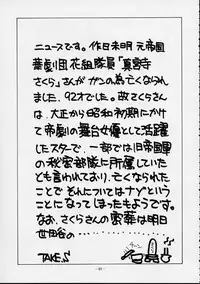 ニュースです。作日未明 元帝国
華撃団 花組隊員「真宮寺
さくら」さんがガンの為亡くなられ
ました。92才でした。故さくらさん
は、大正から昭和初期にかけ
て帝劇の舞台女優として活躍
したスターで、一部では旧帝国軍
の秘密部隊に所属していた
とも言われており、亡くなられた
ことで それについてはナゾという
ことになってしまったもようです。
なお、さくらさんの密葬は明日
世田谷の…
TAKE.S